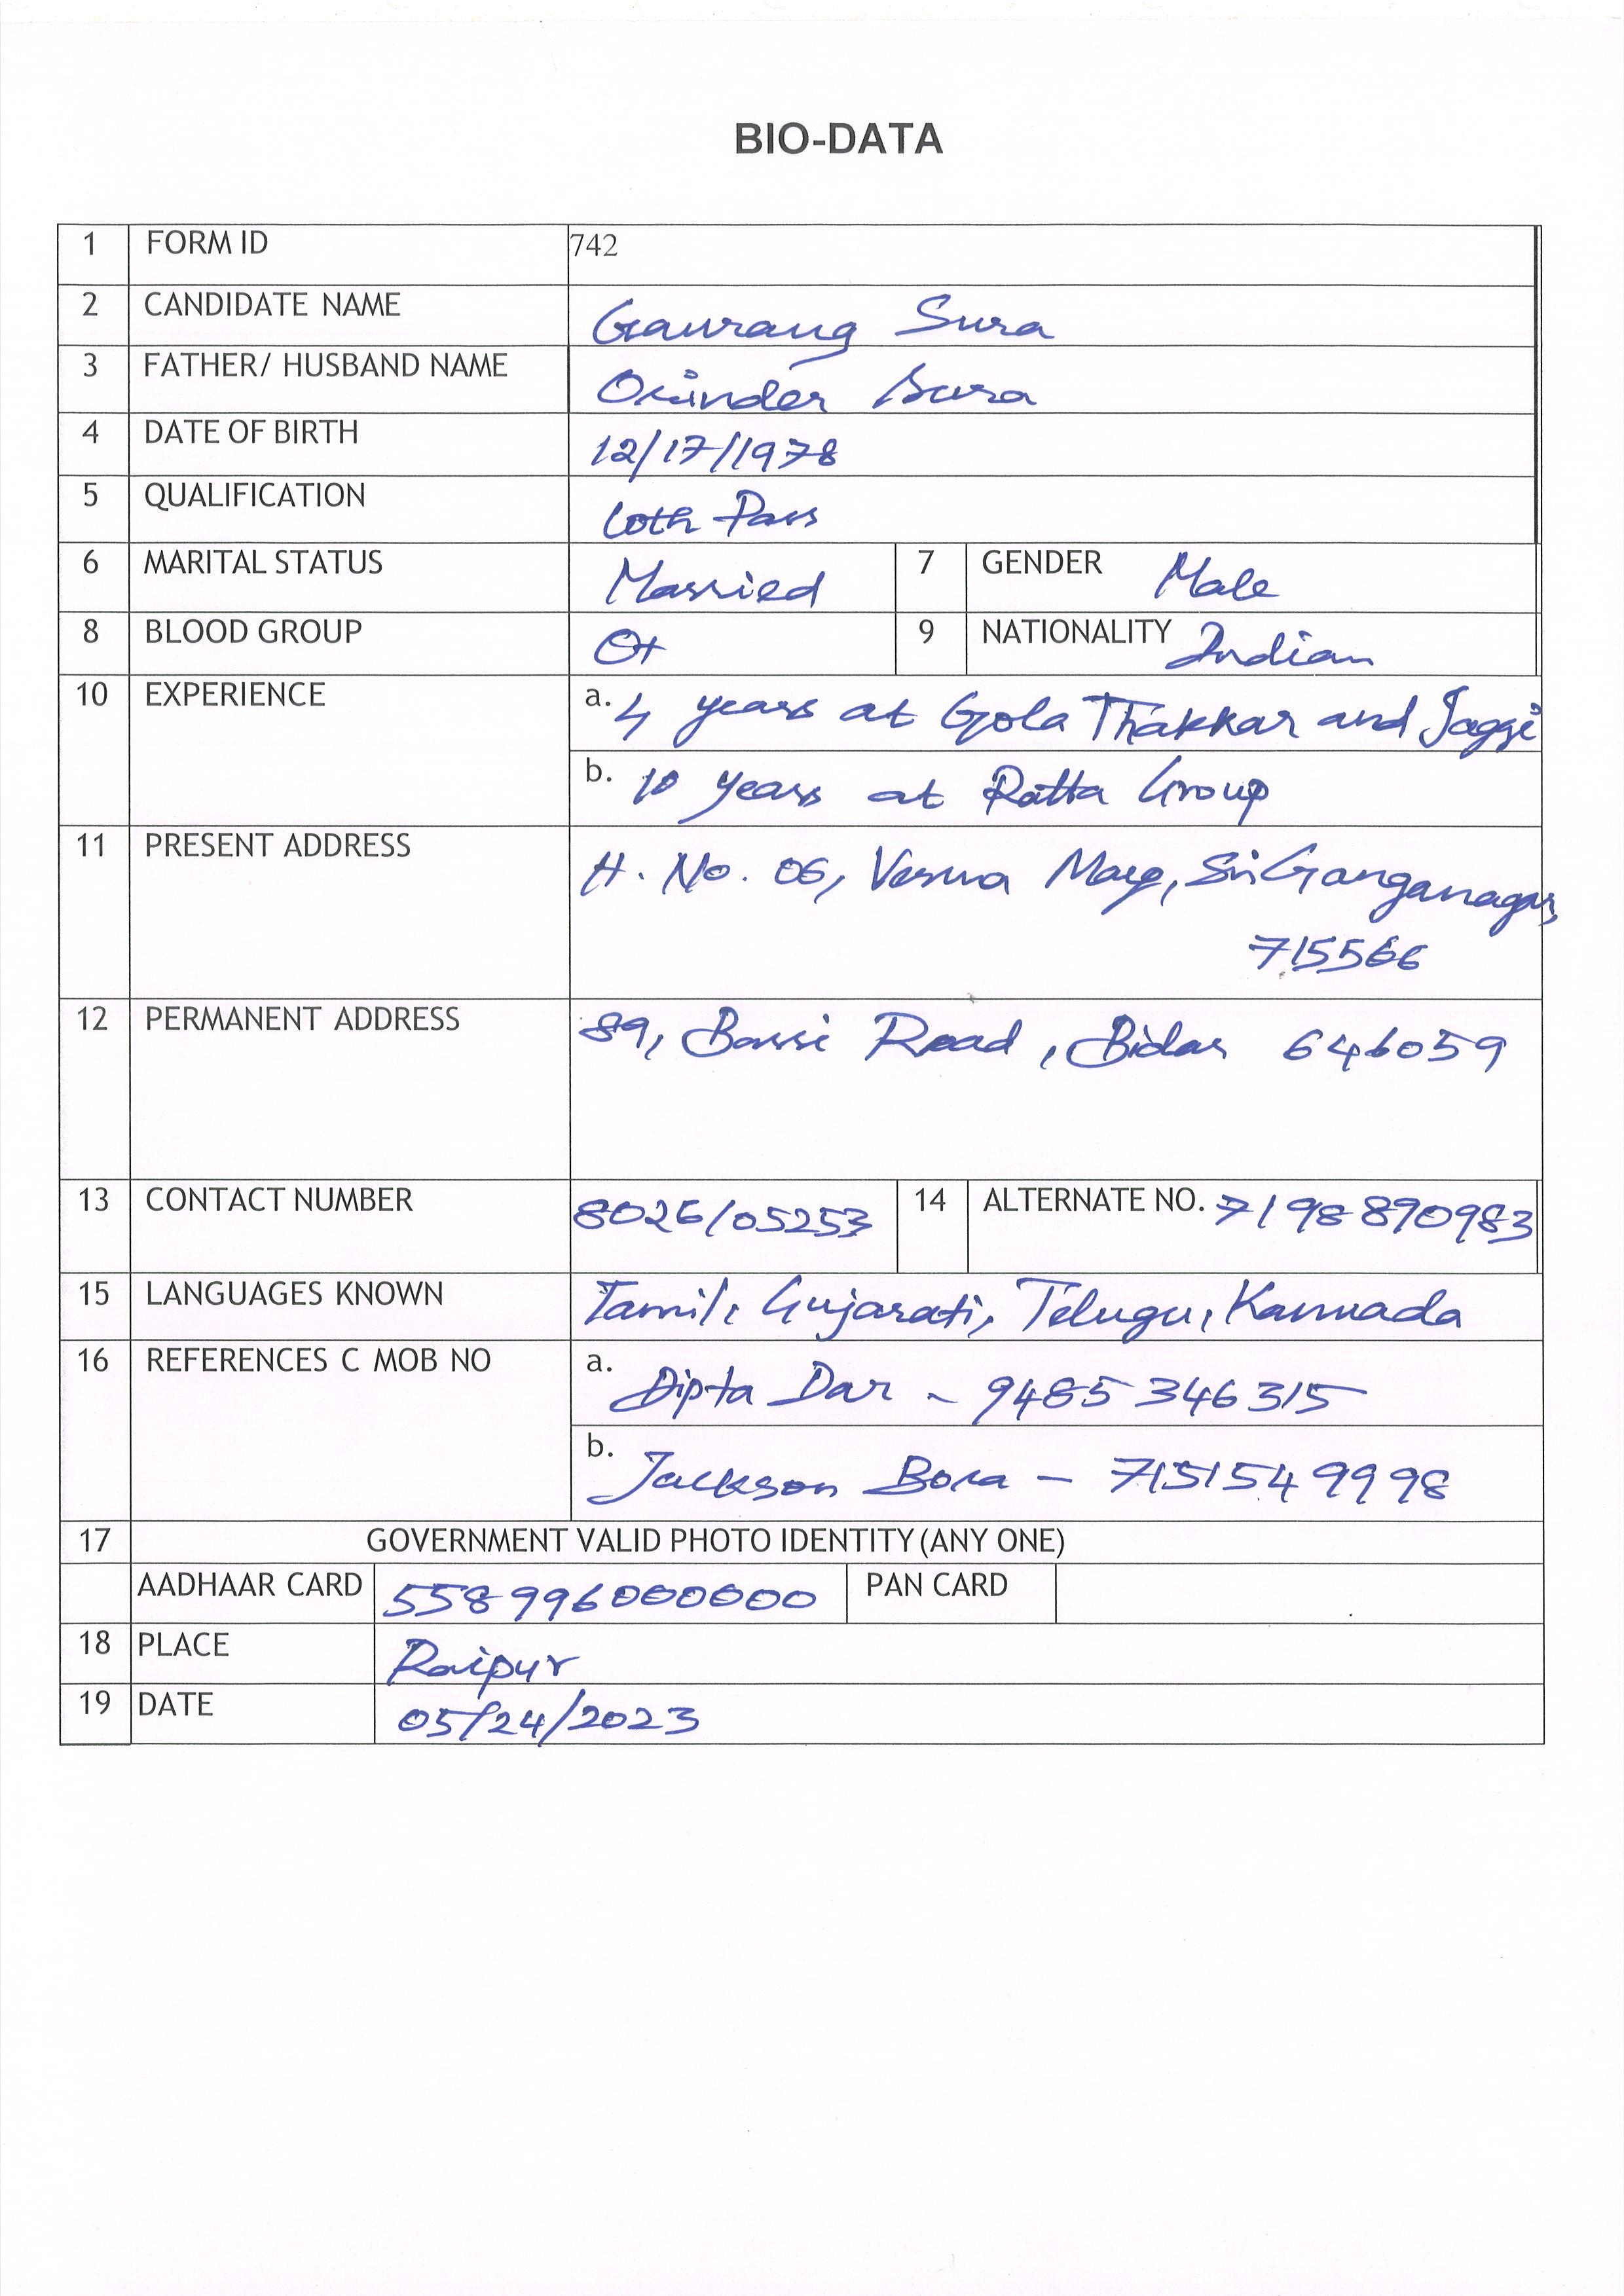 BIO-DATA
1 FORM ID 742
2 CANDIDATE NAME Gaurang Sura
3 FATHER/ HUSBAND NAME Sura
4 DATE OF BIRTH 12/17/1978
5 QUALIFICATION 10th Pass
6 MARITAL STATUS Married 7 GENDER Male
8 BLOOD GROUP O+ 9 NATIONALITY Indian
10 EXPERIENCE a. 4 years at Gola Thakkar and Jaggi
b. 10 years at Ratta Group
11 PRESENT ADDRESS H. No. 06, Verma Marg, Sri Ganganagar,
715566
12 PERMANENT ADDRESS 89, Bassi Road, Bidar 646059
13 CONTACT NUMBER 8026105253 14 ALTERNATE NO. 7198890983
15 LANGUAGES KNOWN Tamil, Gujarati, Telugu, Kannada
16 REFERENCES C MOB NO a. Dipta Dar - 9485346315
b. Jackson Bora - 7151549998
17 GOVERNMENT VALID PHOTO IDENTITY (ANY ONE)
AADHAAR CARD 558996000000 PAN CARD
18 PLACE Raipur
19 DATE 05/24/2023